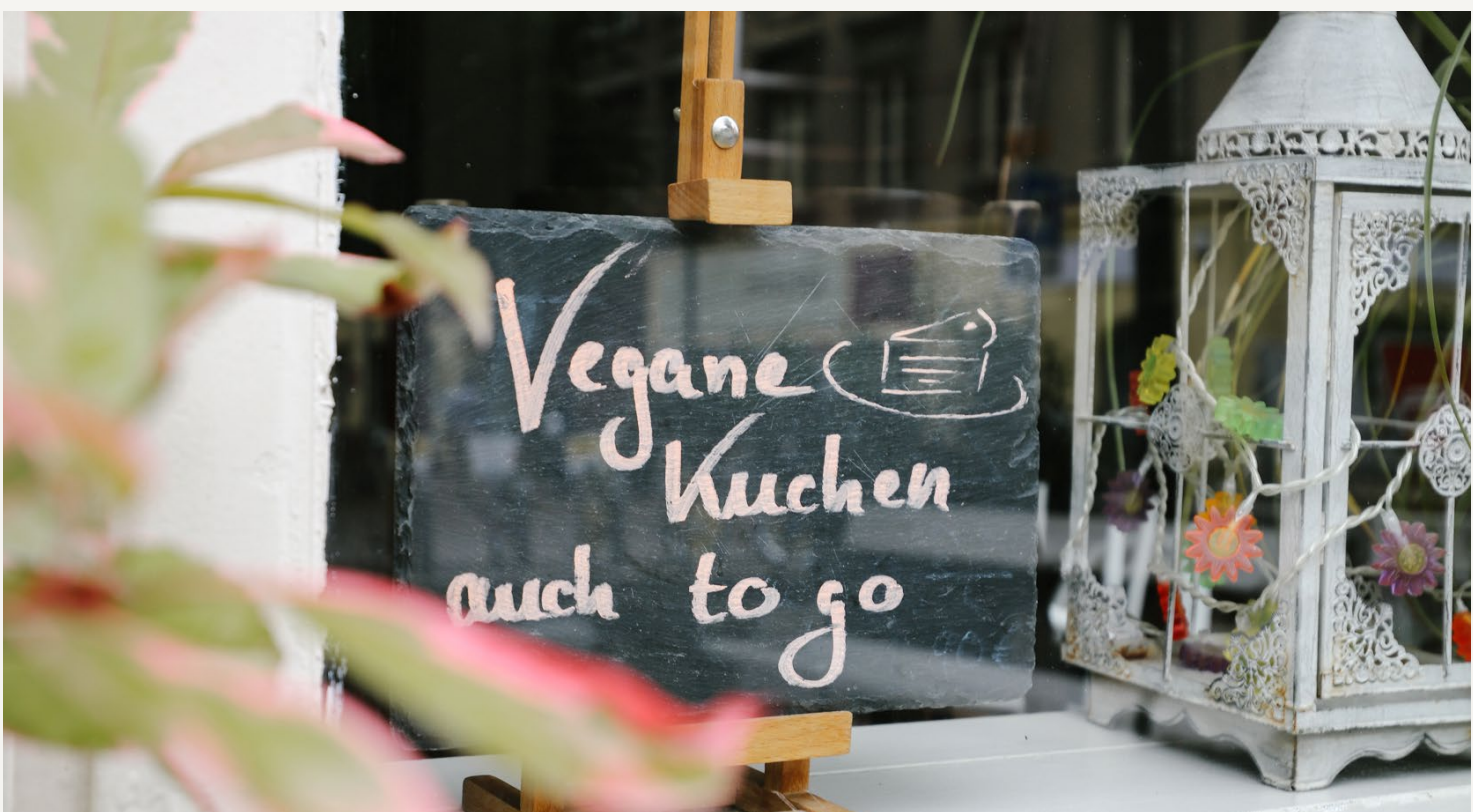 Vegane
Kuchen
auch to go